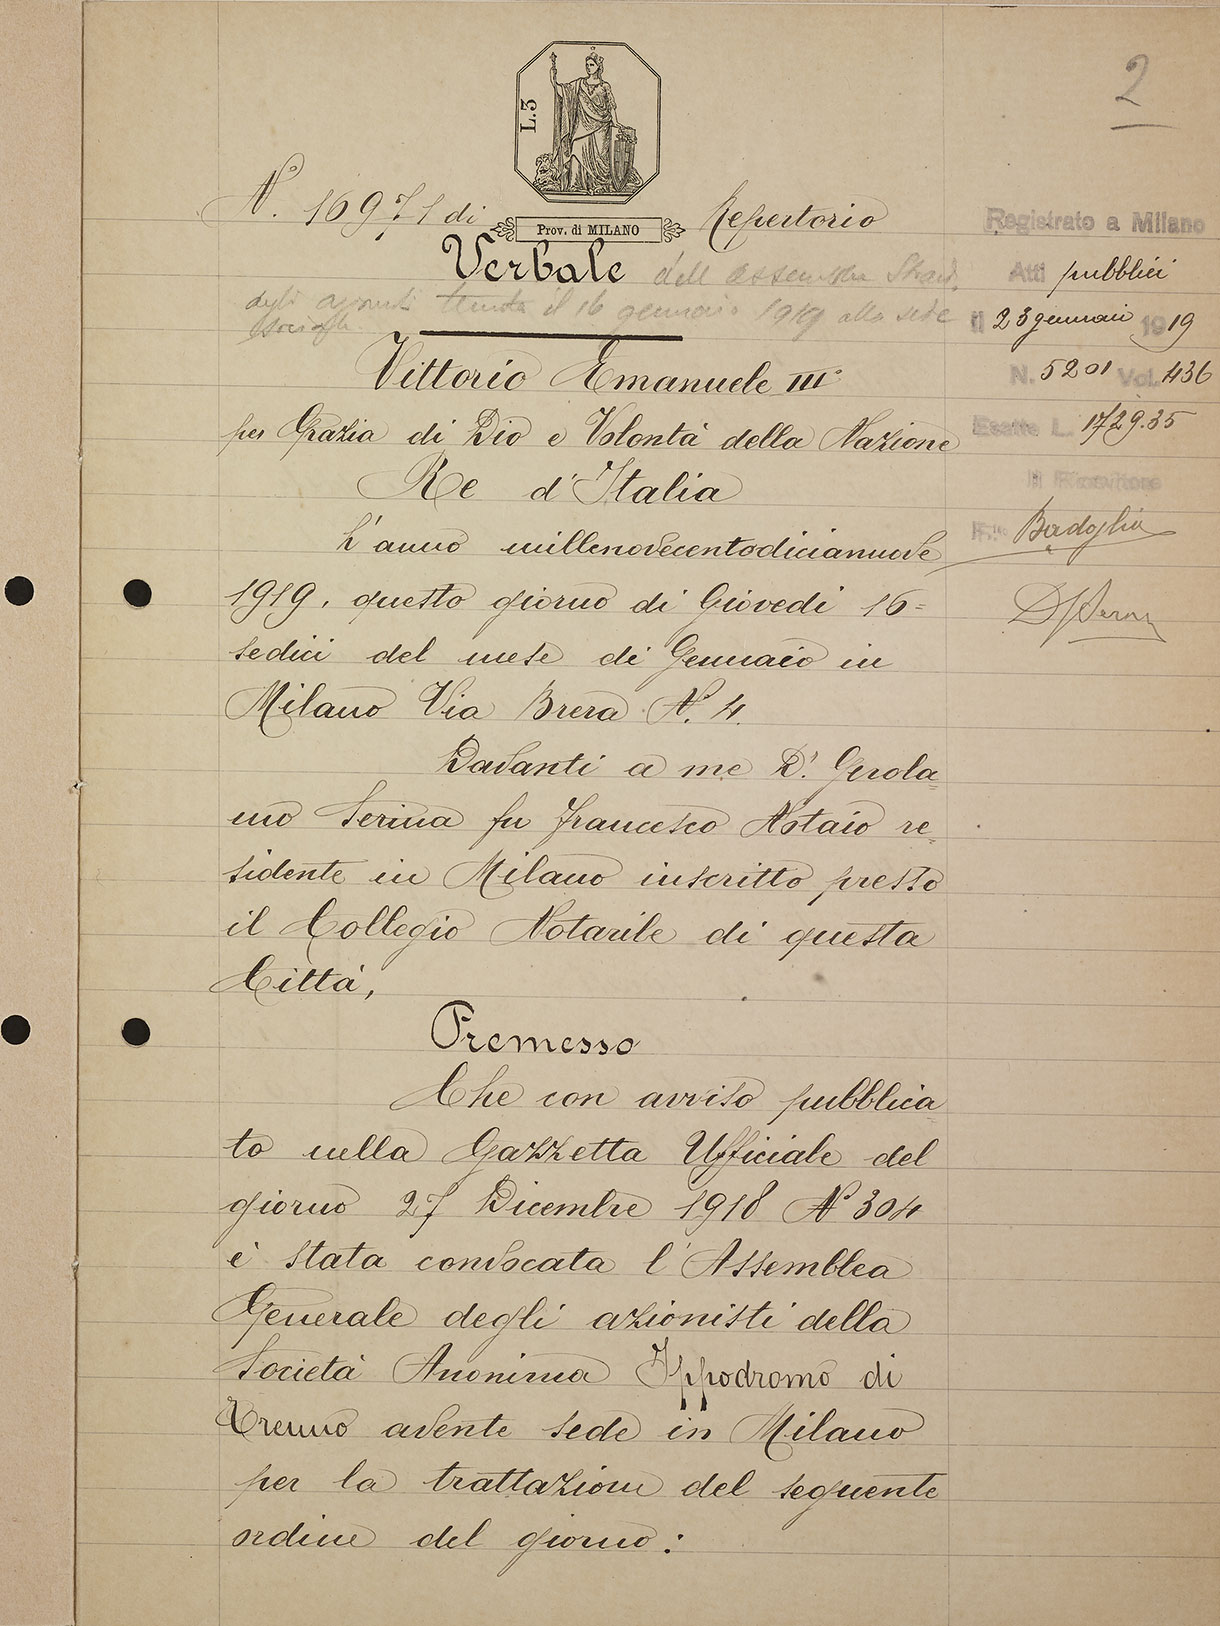 2
L.3
N. 16971 di Repertorio
Prov. di MILANO
Verbale dell'assemblea Straord.
degli azionisti tenuta il 16 gennaio 1919 alla sede
sociale
Vittorio Emanuele III°
per Grazia di Dio e Volontà della Nazione
Re d'Italia
L'anno millenovecentodicianove
1919, questo giorno di Giovedì 16=
sedici del mese di Gennaio in
Milano Via Brera N. 4.
Davanti a me D.r Gerola-
mo Serina fu Francesco Notaio re-
sidente in Milano inscritto presso
il Collegio Notarile di questa
Città,
Premesso
Che con avviso pubblica
to nella Gazzetta Ufficiale del
giorno 27 Dicembre 1918 N° 304
è stata convocata l'Assemblea
Generale degli azionisti della
Società Anonima Ippodromo di
Trenno avente sede in Milano
per la trattazione del seguente
ordine del giorno:
Registrato a Milano
Atti pubblici
il 23 gennaio 1919
N. 5201 Vol. 436
Esatte L. 1729.35
Il Ricevitore
Badoglio